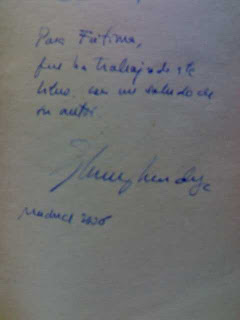 Para Fátima,
que ha trabajado este
libro, con un saludo de
su autor
Madrid 2006